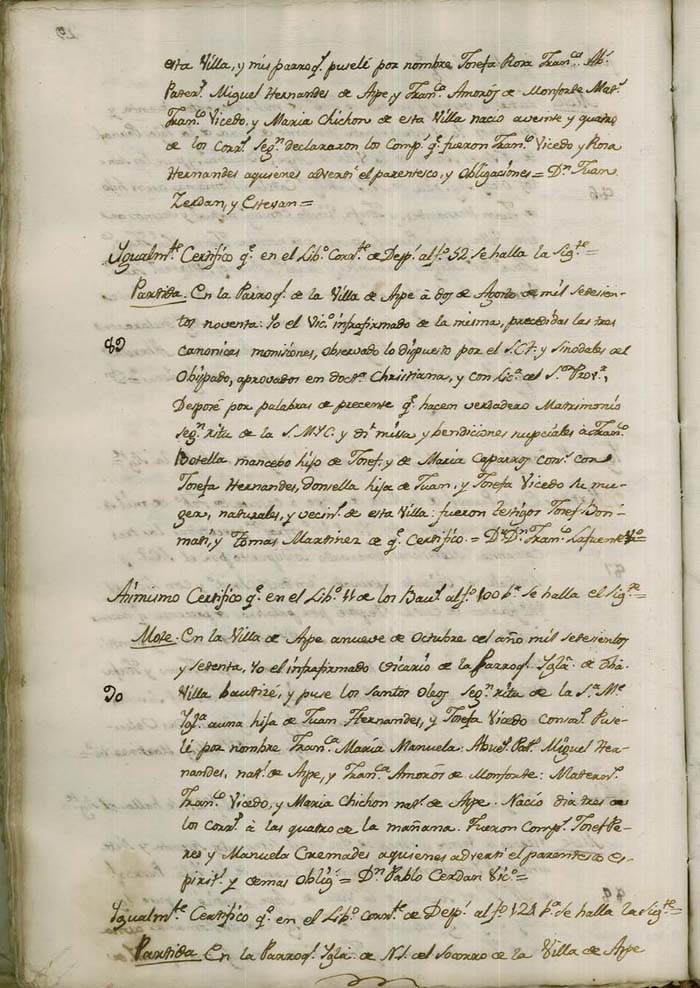 esta Villa, y mis parroq.s puselé por nombre Josefa Rosa Fran.ca Ab.s
Pater.s Miguel Hernandes de Aspe, y Fran.ca Amorós de Monforte Mat.s
Fran.co Vicedo, y Maria Chichon de esta Villa nacio a veinte y quatro
de los corr.s Seg.n declararon los Comp.s q.e fueron Fran.co Vicedo y Rosa
Hernandes aquienes advertí el parentesco, y Obligaciones = D.n Juan
Zerdan, y Estevan =
Ygualm.te Certifico q.e en el Lib.o Corr.te de Desp.s al f.o 52 se halla la Sig.te =
Partida. En la Parroq.l de la Villa de Aspe à dos de Agosto de mil setesien-
tos noventa: Yo el Vic.o infrafirmado de la misma, precedidas las tres
89
canonicas monisiones, observado lo dispuesto por el S.C.T. y Sinodales del
Obispado, aprovados en doct.a Christiana, y con Lic.a del S.or Prov.r,
Desposé por palabras de precente q.e hacen verdadero Matrimonio
seg.n ritu de la S.M.Y.C. y dí missa y bendiciones nupciales à Fran.co
Botella mancebo hijo de Josef, y de Maria Caparros con.s con
Josefa Hernandes, donsella hija de Juan, y Josefa Vicedo su mu-
ger, naturales, y vecin.s de esta Villa: fueron testigos Josef Bon-
mati, y Tomas Martinez de q.e Certifico. = D.r D.n Fran.co Lafuente V.o =
Asimismo Certifico q.e en el Lib.o 11 de los Bau.s al f.o 100 b.ta se halla el Sig.te =
Mote. En la Villa de Aspe a nueve de Octubre del año mil setesientos
y setenta, Yo el infrafirmado vicario de la Parroq.l Ygla. de dha.
90
Villa bautizé, y puse los Santos Oleos Seg.n ritu de la S.ta M.e
Ygl.a a una hija de Juan Hernandes, y Josefa Vicedo Consor.s Puse-
lé por nombre Fran.ca María Manuela. Abuel.s Pat.s Miguel Her-
nandes, nat.s de Aspe, y Fran.ca Amorós de Monforte: Matern.s
Fran.co Vicedo, y Maria Chichon nat.s de Aspe. Nacío dia tres de
los corr.s à las quatro de la mañana. Fueron Comp.s Josef Pe-
res y Manuela Cremades aquienes advertí el parentesco es-
pirit.l y demas oblig.s = D.n Pablo Cerdan Vic.o =
Ygualm.te Certifico q.e en el Lib.o corr.te de Desp.s al f.o 124 b.ta se halla la Sig.te =
Partida. En la Parroq.l Ygla. de N.S. del Socorro de la Villa de Aspe